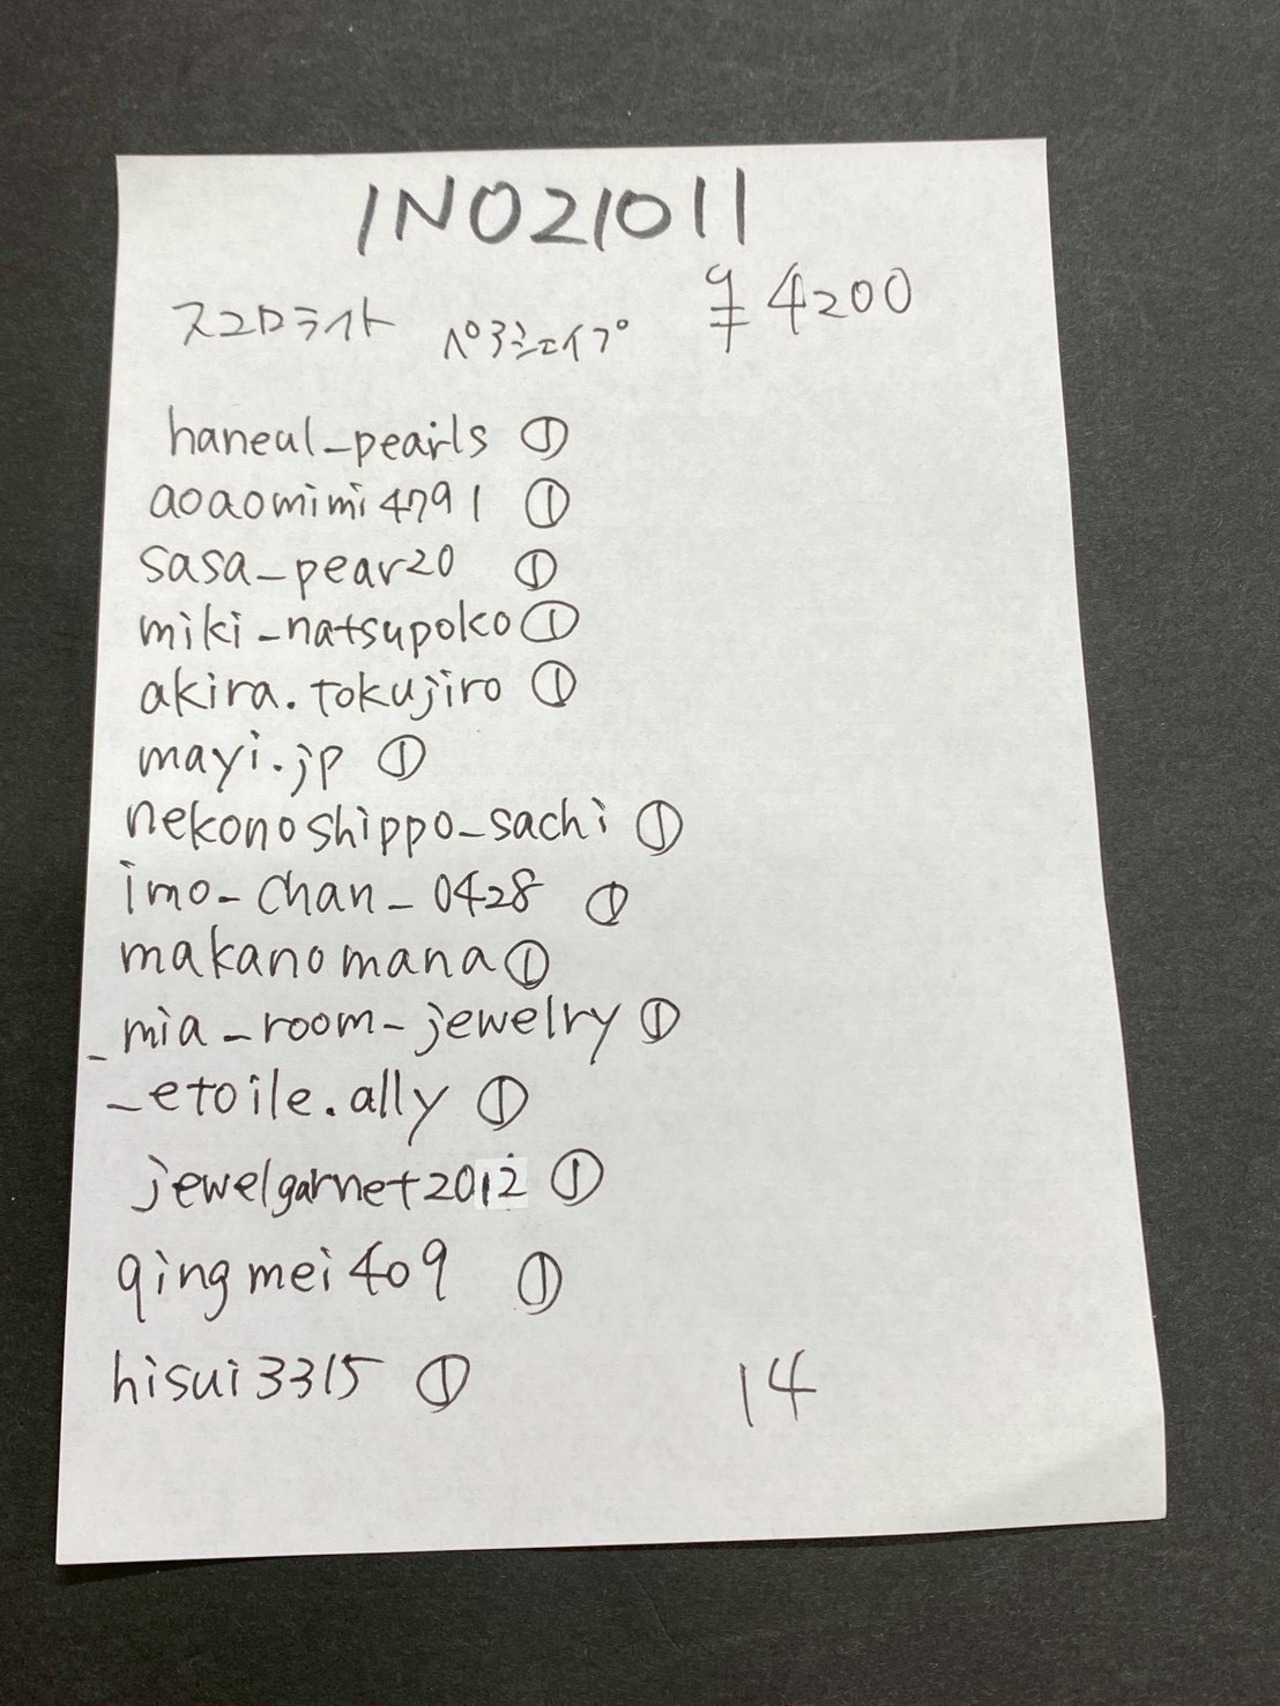 INO21011
¥4200
スコロライト ペアシェイプ
haneul_pearls ①
aoaomimi4791 ①
sasa_pear20 ①
miki_natsupoko ①
akira.tokujiro ①
mayi.jp ①
nekonoshippo_sachi ①
imo_chan_0428 ①
makanomana ①
_mia_room_jewelry ①
_etoile.ally ①
jewelgarnet2012 ①
qingmei409 ①
hisui3315 ①
14